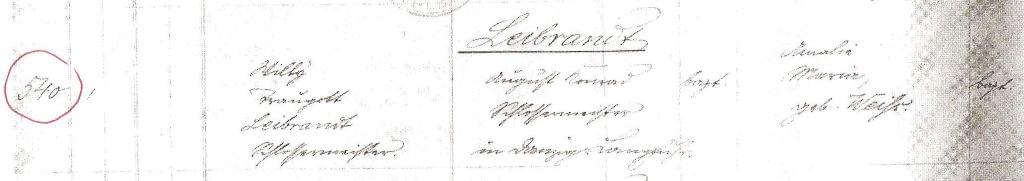 Leibrandt
540
Willy
Traugott
Leibrandt
Schlossermeister.
August Conrad
Schlossermeister
in Danzig-Langfuhr.
bapt.
Amalie
Maria,
geb. Weiss.
bapt.